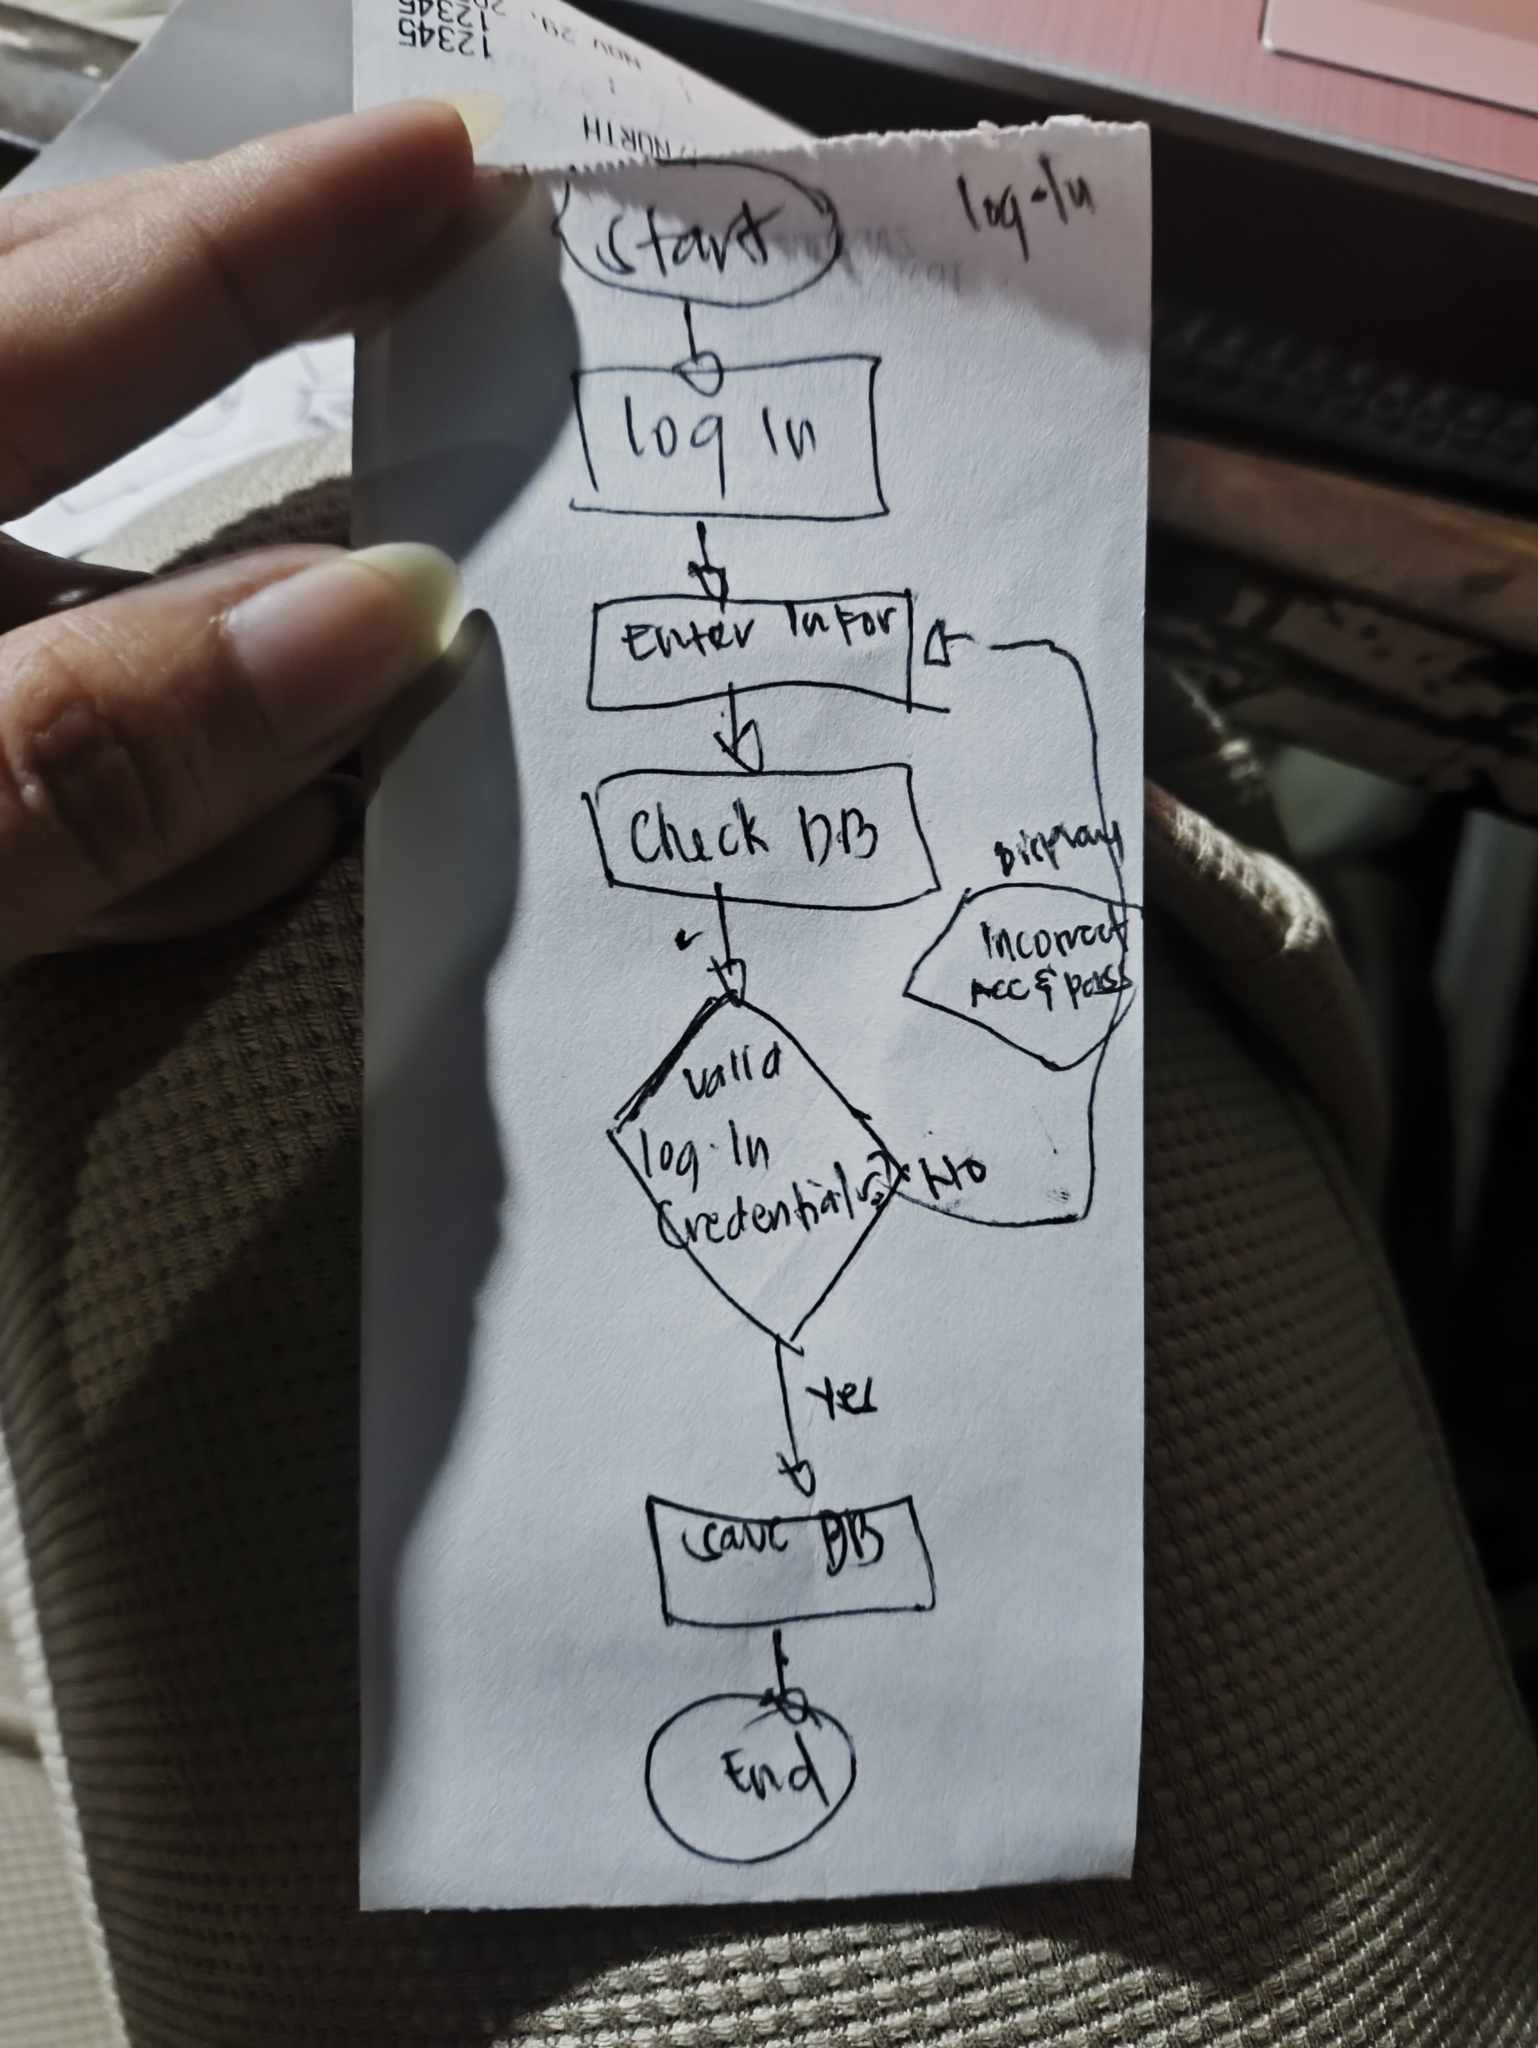 12345
12345
NOV 29,
NORTH
log-In
start
log In
Enter Infor
Check DB
Display
Incorrect
Acc & pass
Valid
log-In
Credentials?
No
Yes
save DB
End